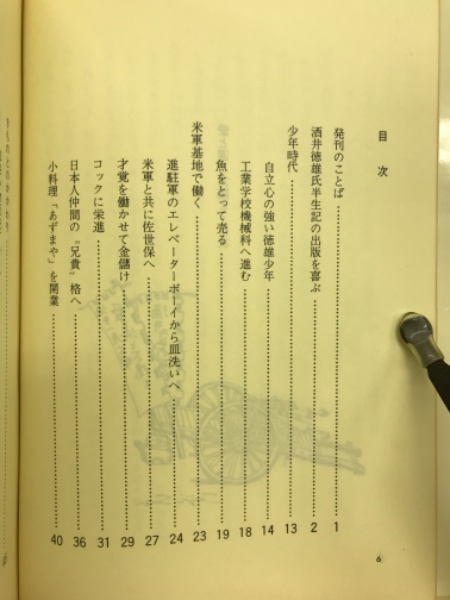 目次
発刊のことば 1
酒井徳雄氏半生記の出版を喜ぶ 2
少年時代 13
自立心の強い徳雄少年 14
工業学校機械科へ進む 18
魚をとって売る 19
米軍基地で働く 23
進駐軍のエレベーターボーイから皿洗いへ 24
米軍と共に佐世保へ 27
才覚を働かせて金儲け 29
コックに栄進 31
日本人仲間の“兄貴”格へ 36
小料理「あずまや」を開業 40
6